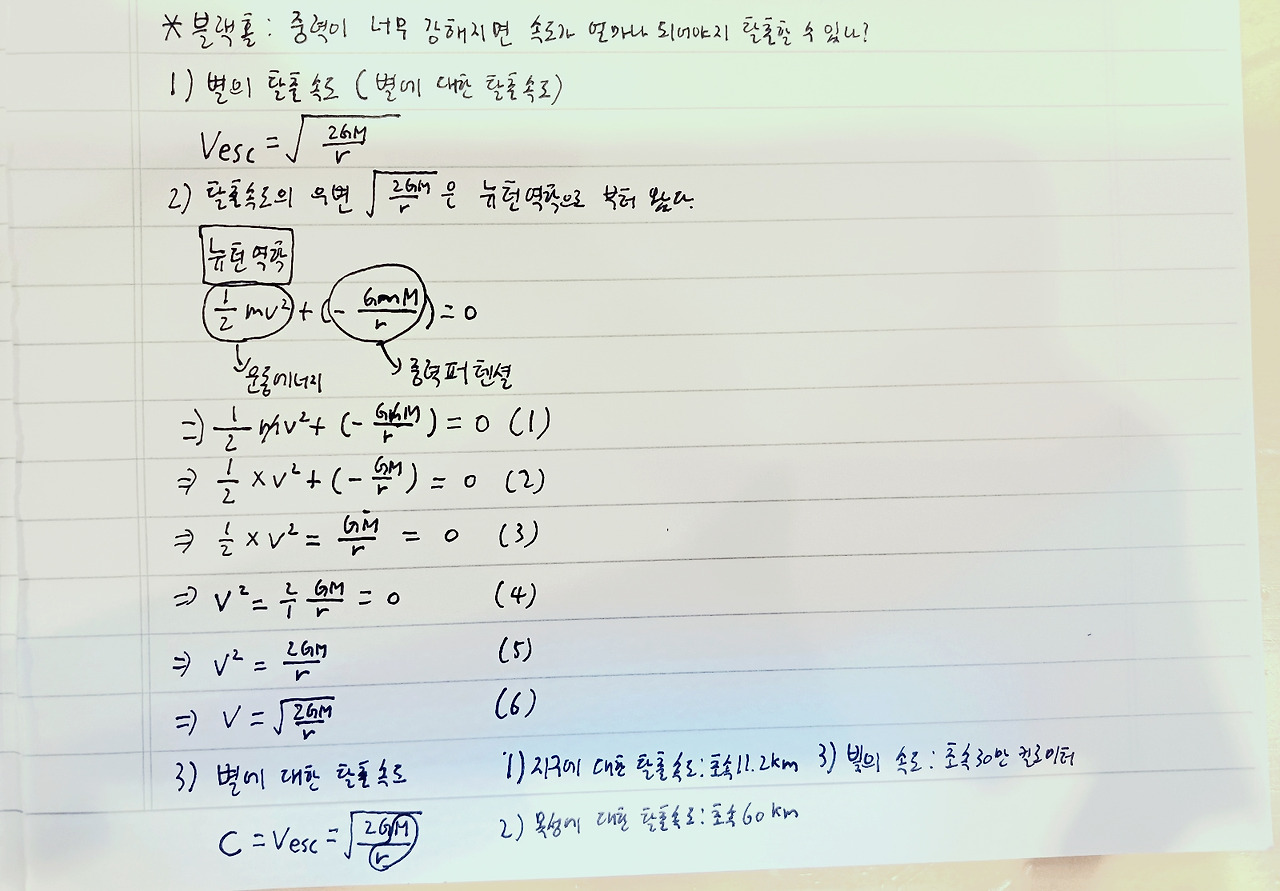 * 블랙홀: 중력이 너무 강해지면 속도가 얼마나 되어야지 탈출할 수 있나?
1) 별의 탈출속도 (별에 대한 탈출속도)
Vesc = √(2GM/r)
2) 탈출속도의 우변 √(2GM/r) 은 뉴턴역학으로 부터 왔다.
뉴턴역학
1/2 mv² + (- GmM/r) = 0
운동에너지 중력퍼텐셜
=> 1/2 mv² + (- GmM/r) = 0 (1)
=> 1/2 × v² + (- GM/r) = 0 (2)
=> 1/2 × v² = GM/r = 0 (3)
=> v² = 2/1 GM/r = 0 (4)
=> v² = 2GM/r (5)
=> V = √(2GM/r) (6)
3) 별에 대한 탈출속도 1) 지구에 대한 탈출속도: 초속11.2km 3) 빛의 속도: 초속30만 킬로미터
C = Vesc = √(2GM/r) 2) 목성에 대한 탈출속도: 초속60km